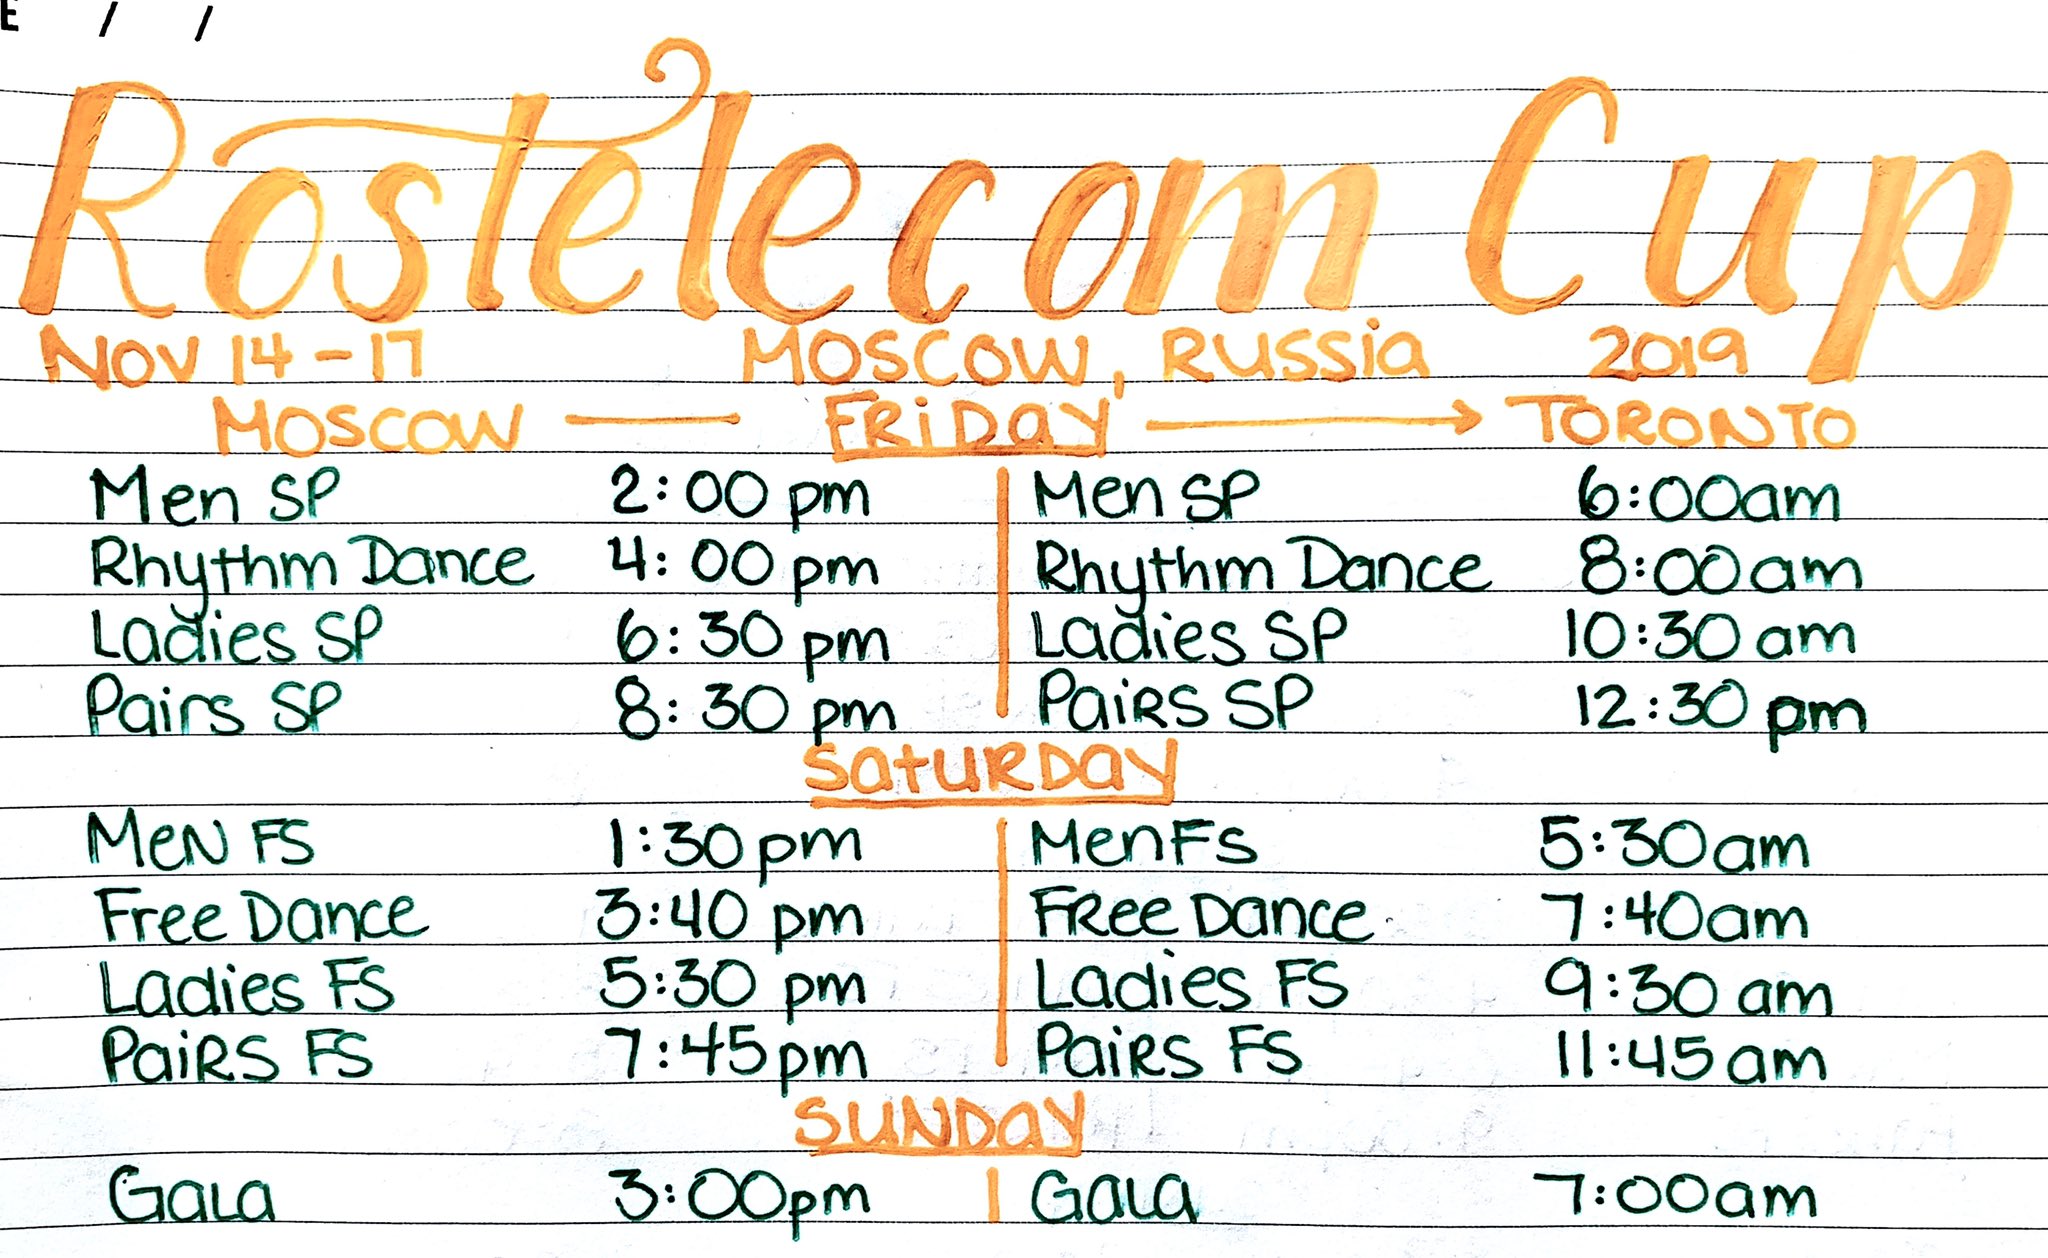 E / /
Rostelecom Cup
NOV 14-17 MOSCOW, RUSSIA 2019
MOSCOW FRIDAY TORONTO
Men SP 2:00 pm Men SP 6:00am
Rhythm Dance 4:00 pm Rhythm Dance 8:00am
Ladies SP 6:30 pm Ladies SP 10:30 am
Pairs SP 8:30 pm Pairs SP 12:30 pm
SATURDAY
Men FS 1:30pm Men FS 5:30am
Free Dance 3:40 pm Free Dance 7:40am
Ladies FS 5:30 pm Ladies FS 9:30 am
Pairs FS 7:45pm Pairs FS 11:45am
SUNDAY
Gala 3:00pm Gala 7:00am